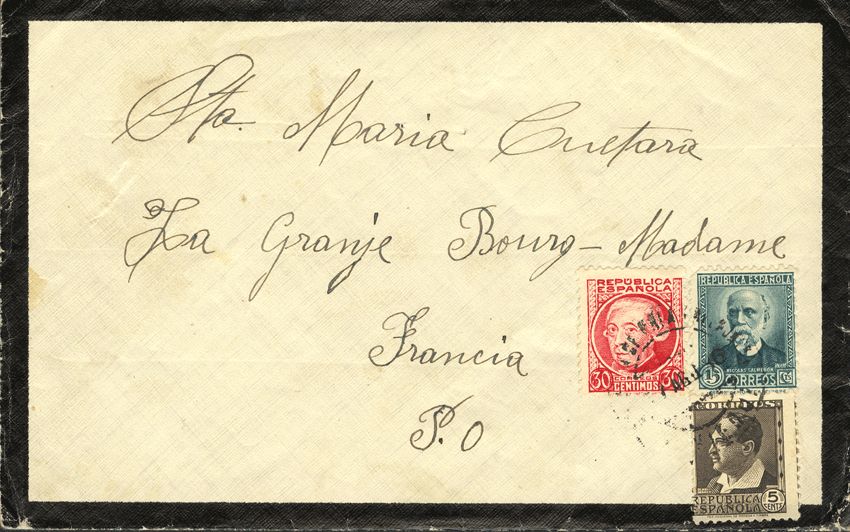 Sta. Maria Cuetara
La Granje Bourg-Madame
Francia
P.O
REPÚBLICA ESPAÑOLA
30 CENTIMOS 30
REPUBLICA ESPAÑOLA
NICOLAS SALMERON
15 CORREOS CTS
CORREOS
REPUBLICA ESPAÑOLA
5 CENTS